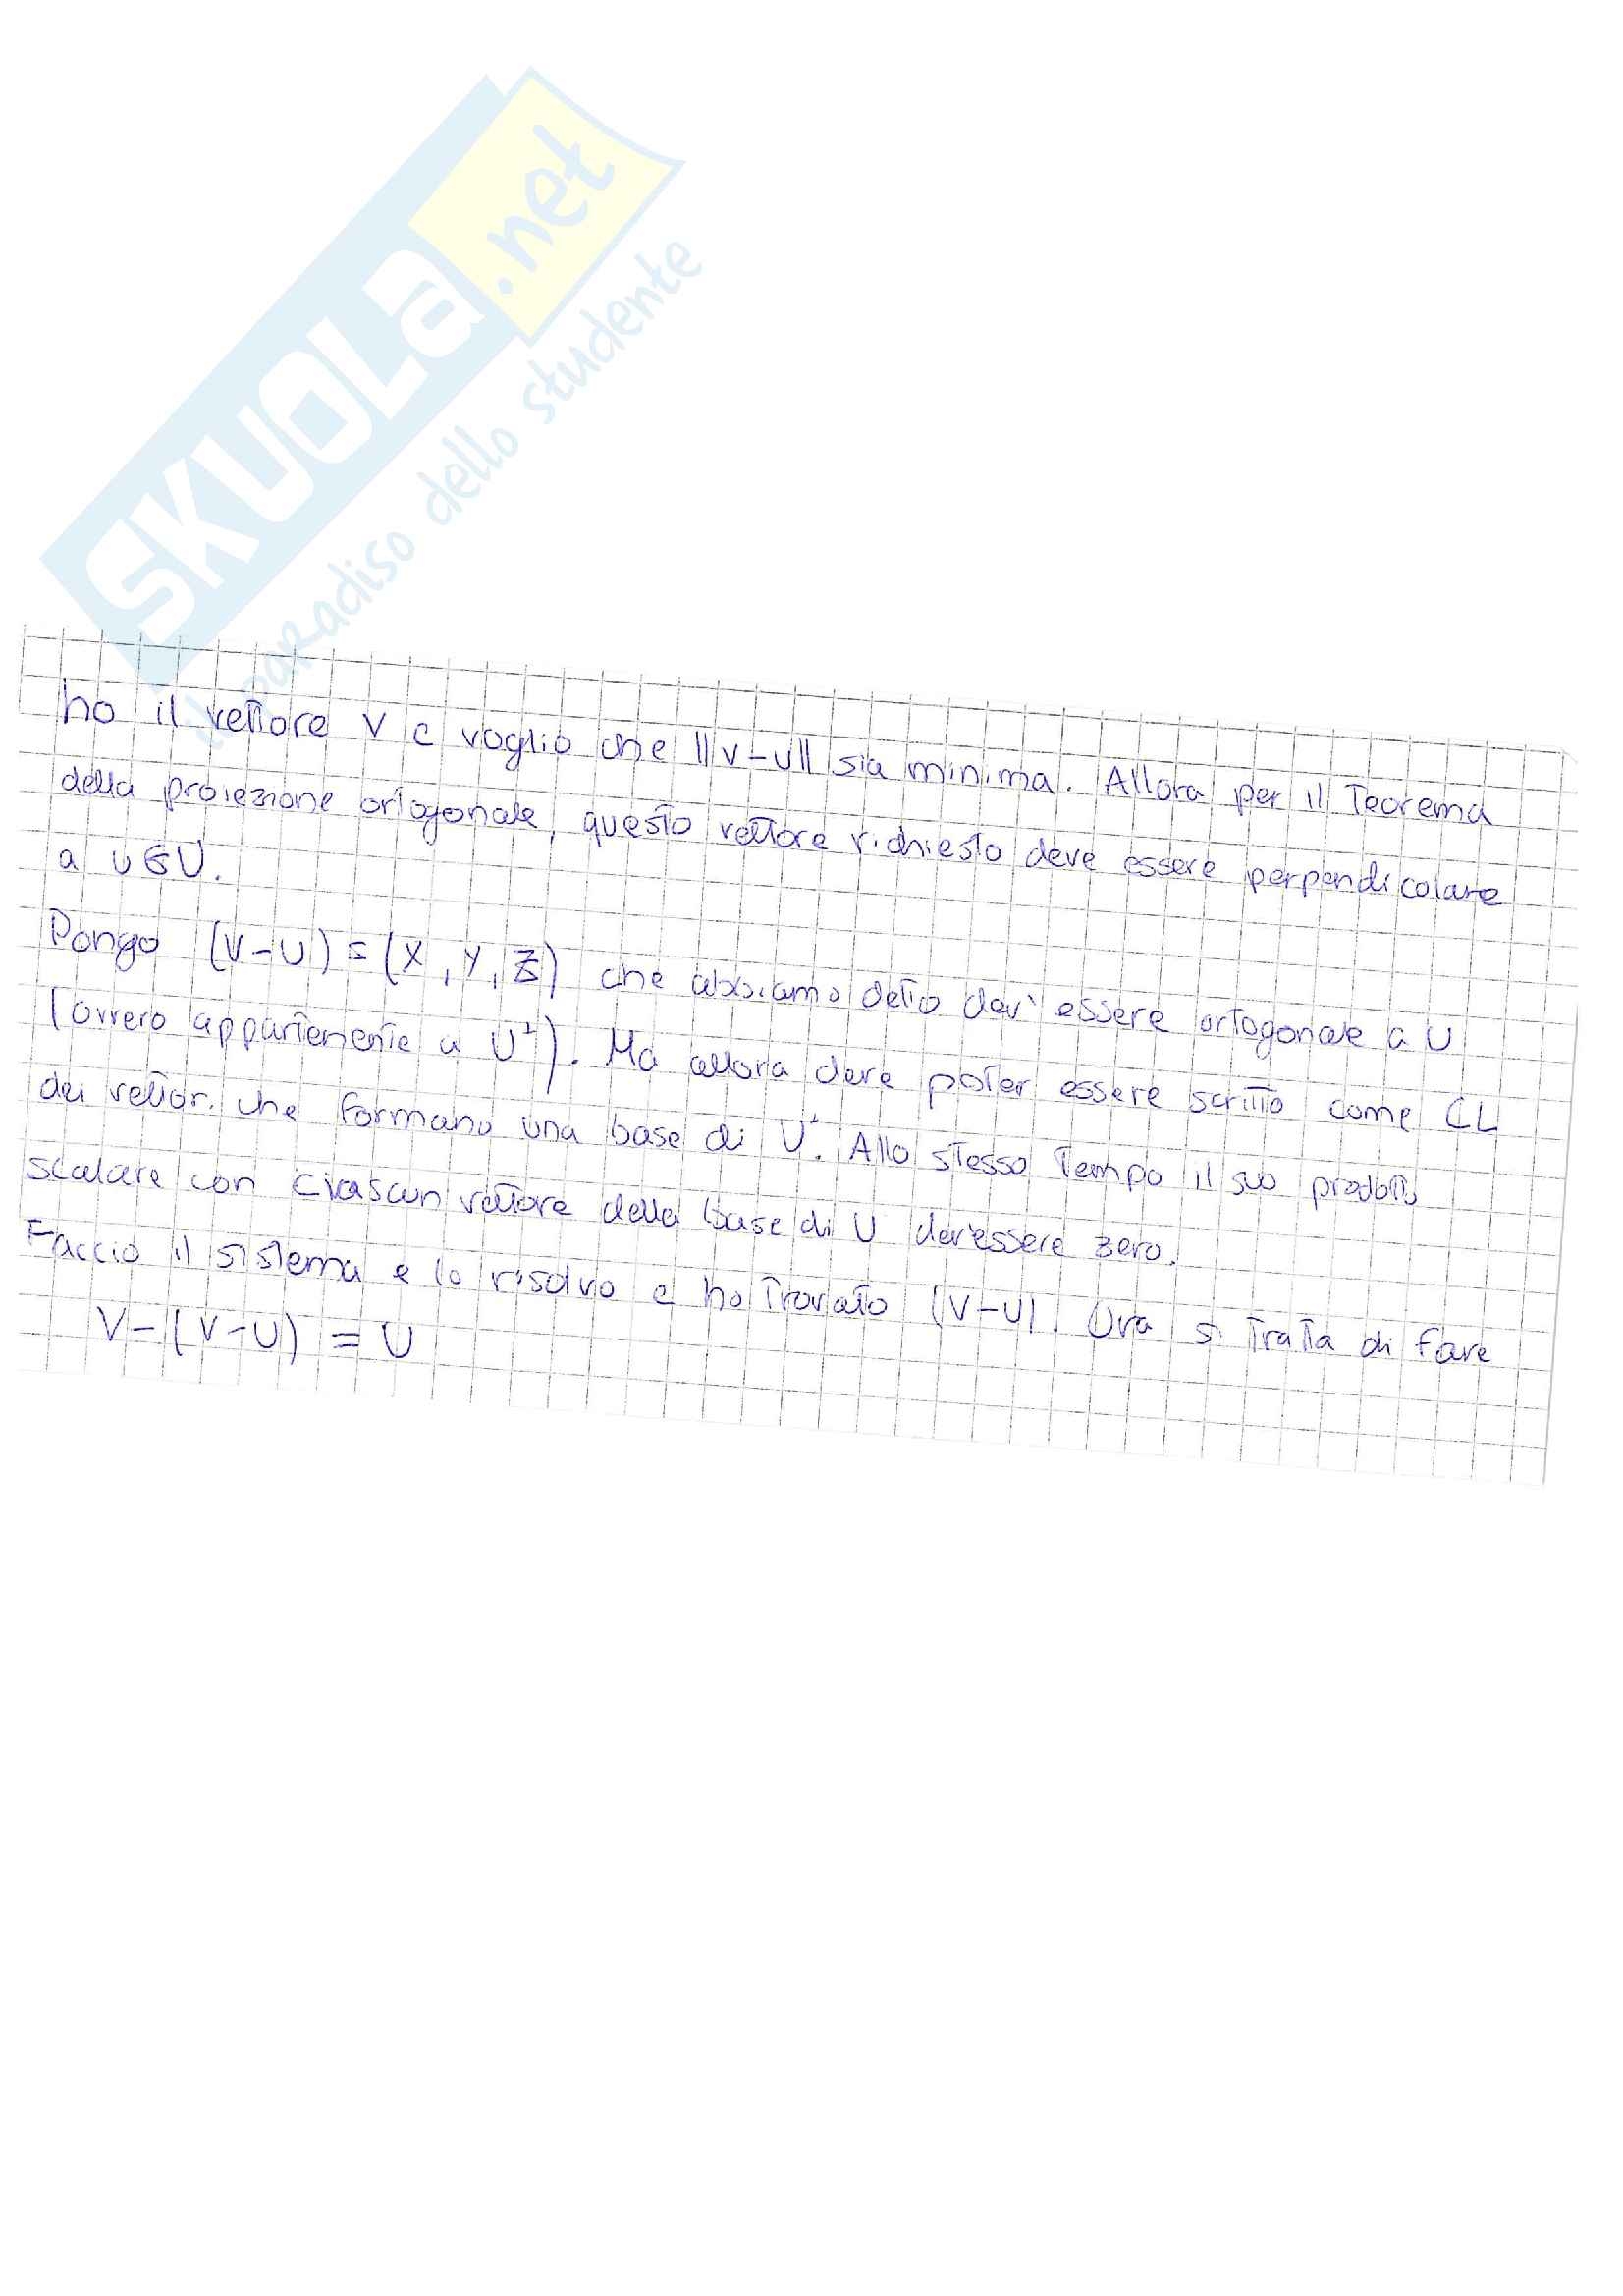 SKUOLA.net
il paradiso dello studente
ho il vettore v e voglio che ||v-u|| sia minima. Allora per il Teorema
della proiezione ortogonale, questo vettore richiesto deve essere perpendicolare
a u∈U.
Pongo (v-u) = (x, y, z) che abbiamo detto dev'essere ortogonale a U
(ovvero appartenente a U⊥). Ma allora deve poter essere scritto come CL
dei vettori che formano una base di U⊥. Allo stesso tempo il suo prodotto
scalare con ciascun vettore della base di U dev'essere zero.
Faccio il sistema e lo risolvo e ho trovato (v-u). Ora si tratta di fare
v-(v-u) = u